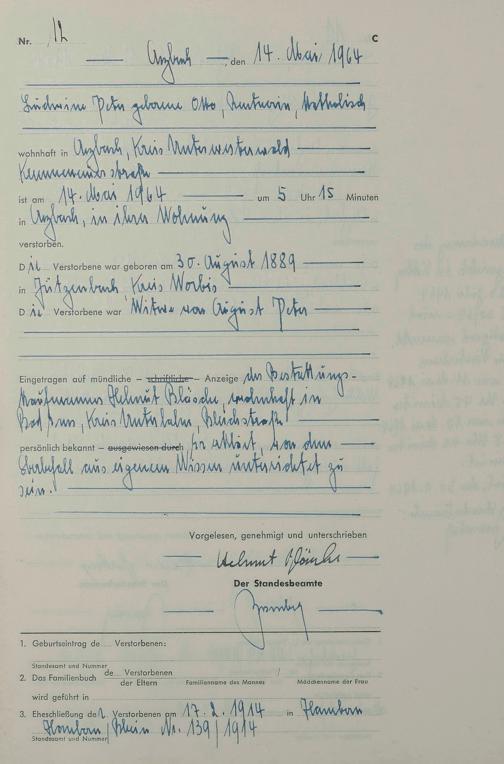 Nr. 12 C
Arzbach, den 14. Mai 1964
Ludwine Peter geborene Otto, Rentnerin, katholisch
wohnhaft in Arzbach, Kreis Unterwesterwald
Kemmenauerstraße
ist am 14. Mai 1964 um 5 Uhr 15 Minuten
in Arzbach, in ihrer Wohnung
verstorben.
Die Verstorbene war geboren am 30. August 1889
in Jützenbach Kreis Worbis
Die Verstorbene war Witwe von August Peter
Eingetragen auf mündliche – schriftliche – Anzeige des Bestattungs-
kaufmannes Helmut Bläsche, wohnhaft in
Bad Ems, Kreis Unterlahn, Bleichstraße
persönlich bekannt – ausgewiesen durch er erklärt, von dem
Sterbefall aus eigenem Wissen unterrichtet zu
sein.
Vorgelesen, genehmigt und unterschrieben
Helmut
Der Standesbeamte
1. Geburtseintrag de Verstorbenen:
Standesamt und Nummer
2. Das Familienbuch de Verstorbenen
der Eltern Familienname des Mannes Mädchenname der Frau
wird geführt in
3. Eheschließung der Verstorbenen am 17.2.1914 in Hamborn
Hamborn/Rhein Nr. 139/1914
Standesamt und Nummer